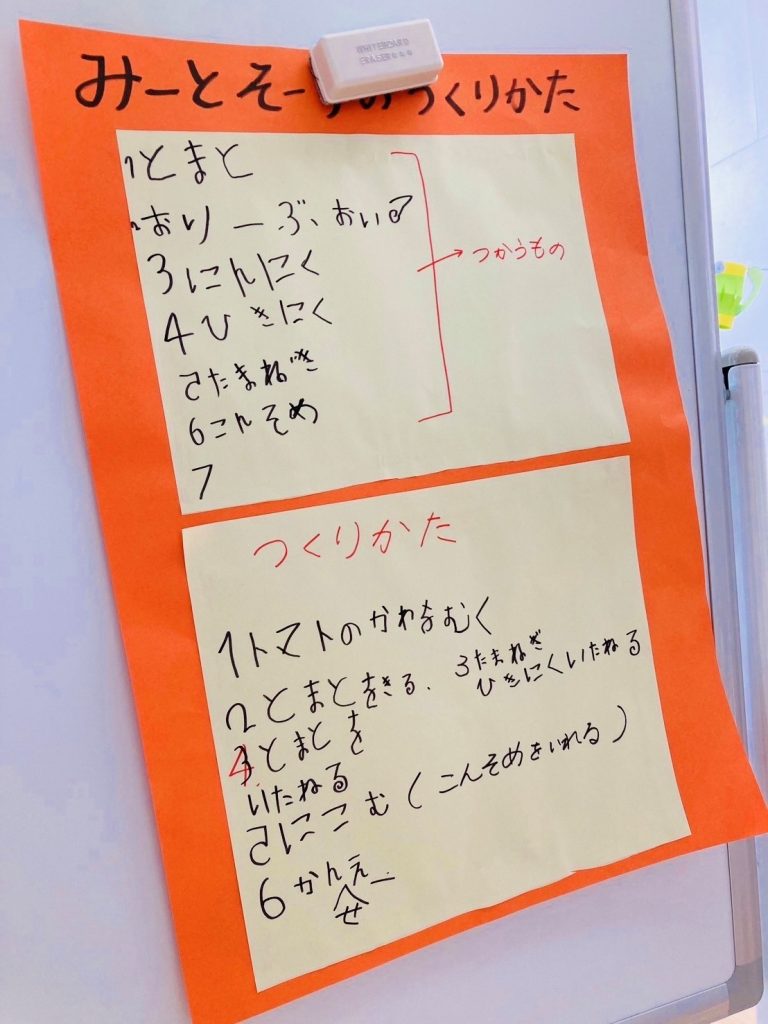 WHITEBOARD
ERASER
みーとそーすのつくりかた
1とまと
2おりーぶおいる
3にんにく
4ひきにく
5たまねぎ
6こんそめ
7
つかうもの
つくりかた
1トマトのかわをむく
2とまとをきる、
3たまねぎ
ひきにくいためる
4とまとを
いためる
5にこむ(こんそめをいれる)
6かんせー